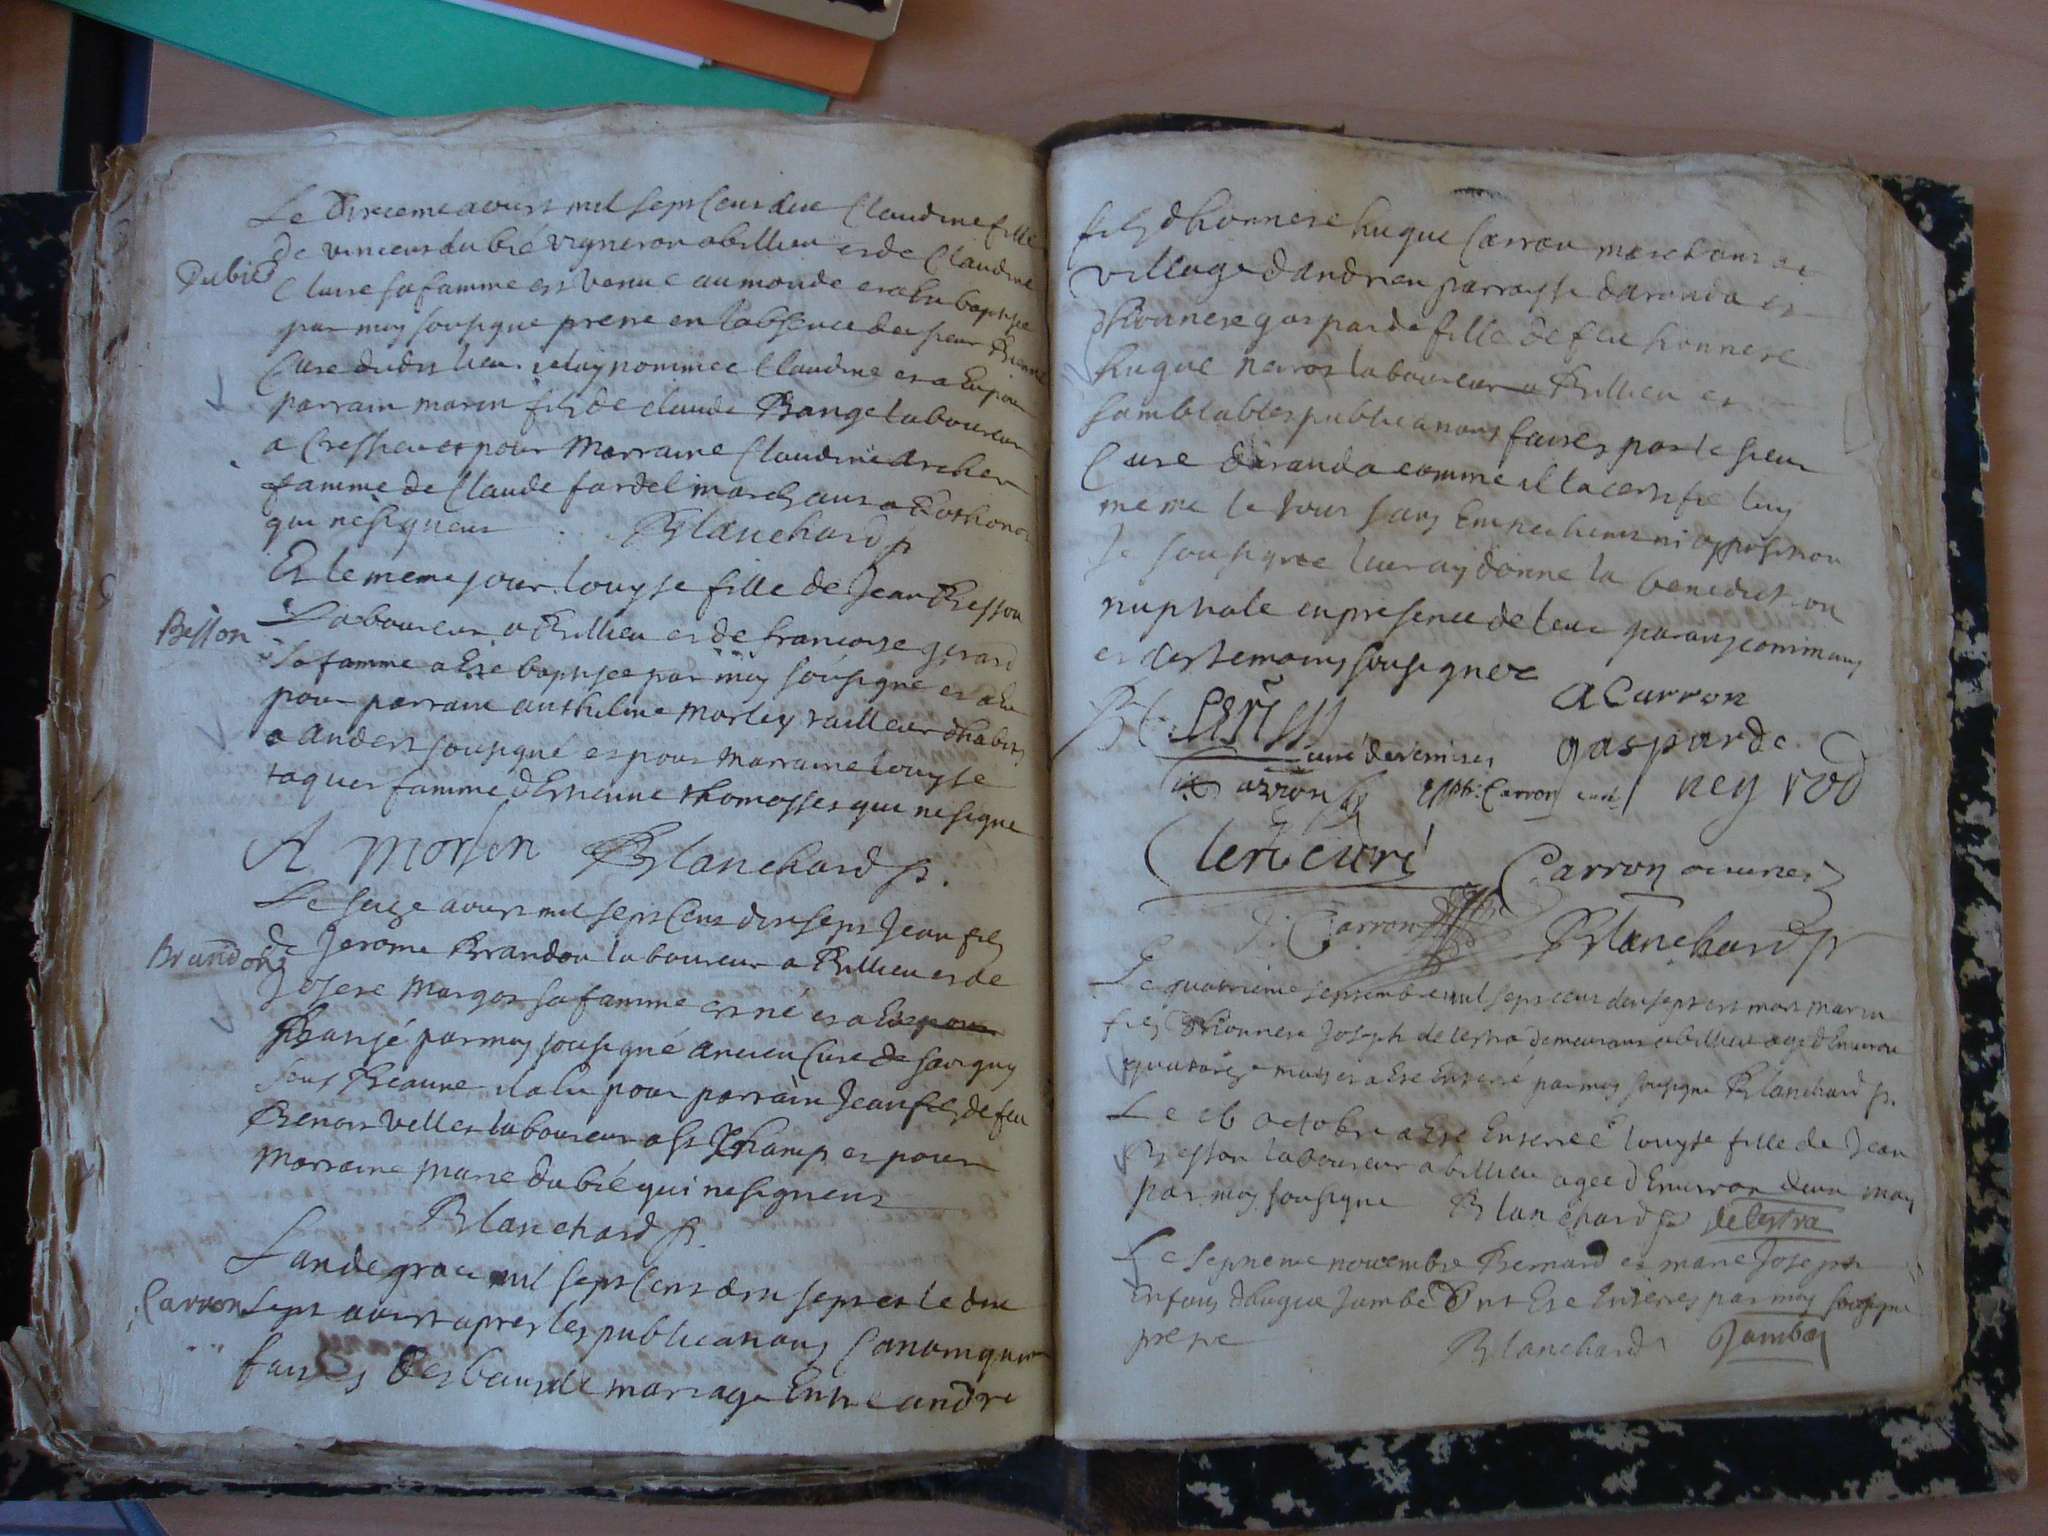 Le treizeme aoust mil sept Cens dix Claudine fille
de vincent dubié vigneron a billieu et de Claudine
Dubié
Claire sa famme est venue au monde et a Eu baptisee
par moy sousigné pretre en l'absence du sieur
Curé dudit lieu. nommee Claudine et a Eu pour
parrain marin fils de Claude Bange laboureur
a Cressieu et pour Marraine Claudine Archer
famme de Claude fardel marchant a Rothonod
qui ne signeut Blanchard p
Et le meme jour louyse fille de Jean Besson
Besson
Laboureur a Billieu et de francoise gerard
sa famme a Eté baptisee par moy sousigné et a Eu
pour parrain anthelme morley tailleur d'habits
a Andert sousigné et pour Marraine louyse
taquet famme d'Etienne thomasset qui ne signe
A morlen Blanchard p.
Le seize aoust mil sept Cens dix sept Jean fils
Brandon
de Jerome Brandon laboureur a Billieu et de
Josete margot sa famme est né et a Eté pour
Batisé par moy sousigné ancien Curé de savigny
sous Beaune il a Eu pour parrain Jean fils de feu
Benoit Vellet laboureur a St Champ et pour
Marraine marie dubié qui ne signent
Blanchard p.
L'an de grace mil sept Cens dix sept et le dix
Carron
sept aoust apres les publications Canoniques
faites des bans de mariage Entre andré
fils d'honnete hugue Carron marchant au
village d'andrieu parroysse daranda et
d'honnete gasparde fille de feu honnete
hugue neirod laboureur a Billieu et
samblables publications faites par le sieur
Curé daranda comme il l'a certifié luy
meme le tout sans Empechement ni opposition
Je sousigné leur ay donné la benediction
nuptiale en presence de leur parans communs
et des temoins sousignez
a Carron
curé de virieu gasparde
Carron Carron ney rod
Clerc curé Carron
J. Carron Blanchard p
Le quatrieme septembre mil sept cens dix sept est mort marin
fils d'honnete Joseph de lestra demeurant a billieu agé d'Environ
quatorze moys et a Eté Enterré par moy sousigné Blanchard p.
Le 16 octobre a Eté Enterreé louyse fille de Jean
Besson laboureur a billieu agée d'Environ deux moys
par moy sousigné Blanchard p delestra
Le septieme novembre Bernard et marie Joseph
Enfans d'hugue Jambé ont Eté Enterrés par moy sousigné
pretre Blanchard Jambé